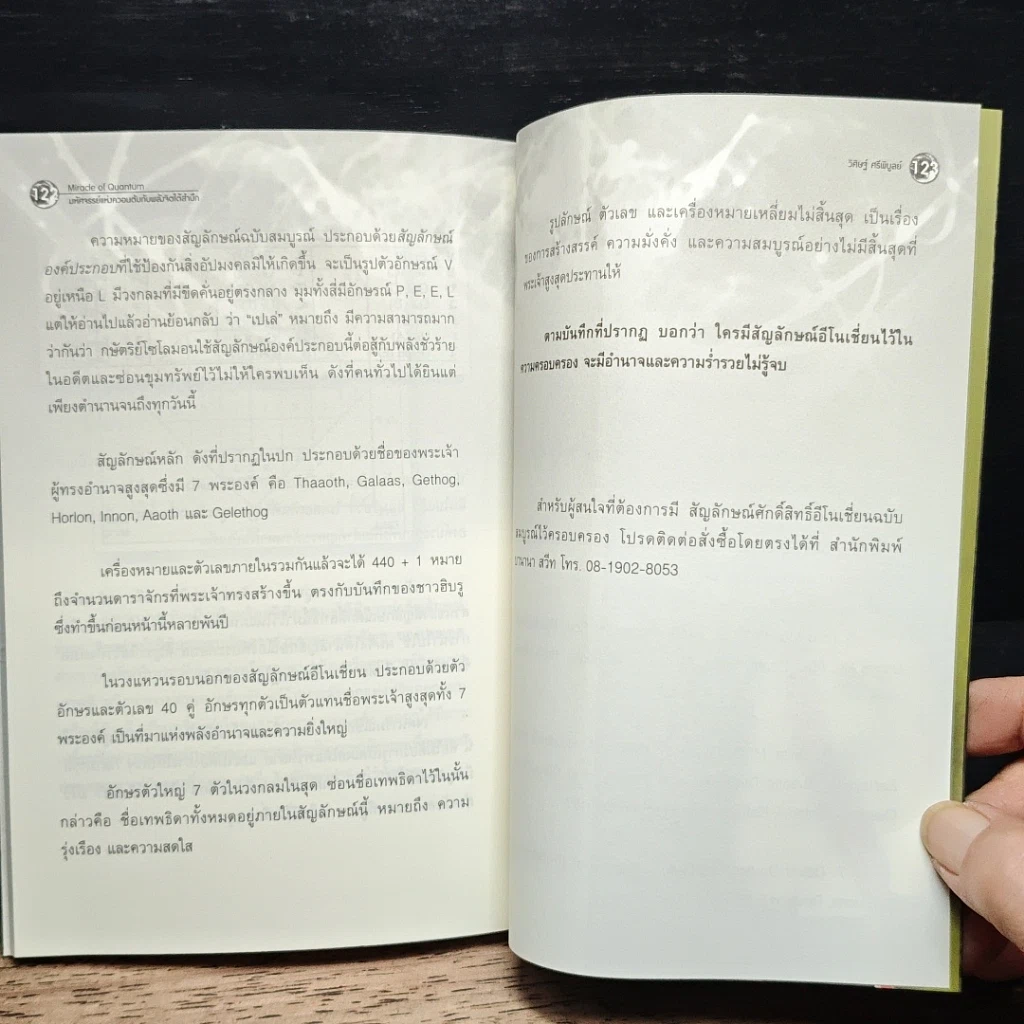 122
Miracle of Quantum
มหัศจรรย์แห่งควอนตัมกับพลังจิตใต้สำนึก
ความหมายของสัญลักษณ์ฉบับสมบูรณ์ ประกอบด้วยสัญลักษณ์
องค์ประกอบที่ใช้ป้องกันสิ่งอัปมงคลมิให้เกิดขึ้น จะเป็นรูปตัวอักษรณ์ V
อยู่เหนือ L มีวงกลมที่มีขีดคั่นอยู่ตรงกลาง มุมทั้งสี่มีอักษรณ์ P, E, E, L
แต่ให้อ่านไปแล้วอ่านย้อนกลับ ว่า “เปเล่” หมายถึง มีความสามารถมาก
ว่ากันว่า กษัตริย์โซโลมอนใช้สัญลักษณ์องค์ประกอบนี้ต่อสู้กับพลังชั่วร้าย
ในอดีตและซ่อนขุมทรัพย์ไว้ไม่ให้ใครพบเห็น ดังที่คนทั่วไปได้ยินแต่
เพียงตำนานจนถึงทุกวันนี้
สัญลักษณ์หลัก ดังที่ปรากฏในปก ประกอบด้วยชื่อของพระเจ้า
ผู้ทรงอำนาจสูงสุดซึ่งมี 7 พระองค์ คือ Thaaoth, Galaas, Gethog,
Horlon, Innon, Aaoth และ Gelethog
เครื่องหมายและตัวเลขภายในรวมกันแล้วจะได้ 440 + 1 หมาย
ถึงจำนวนดาราจักรที่พระเจ้าทรงสร้างขึ้น ตรงกับบันทึกของชาวฮิบรู
ซึ่งทำขึ้นก่อนหน้านี้หลายพันปี
ในวงแหวนรอบนอกของสัญลักษณ์อีโนเชี่ยน ประกอบด้วยตัว
อักษรและตัวเลข 40 คู่ อักษรทุกตัวเป็นตัวแทนชื่อพระเจ้าสูงสุดทั้ง 7
พระองค์ เป็นที่มาแห่งพลังอำนาจและความยิ่งใหญ่
อักษรตัวใหญ่ 7 ตัวในวงกลมในสุด ซ่อนชื่อเทพธิดาไว้ในนั้น
กล่าวคือ ชื่อเทพธิดาทั้งหมดอยู่ภายในสัญลักษณ์นี้ หมายถึง ความ
รุ่งเรือง และความสดใส
วิศิษฐ์ ศรีพิบูลย์ 123
รูปลักษณ์ ตัวเลข และเครื่องหมายเหลี่ยมไม่สิ้นสุด เป็นเรื่อง
ของการสร้างสรรค์ ความมั่งคั่ง และความสมบูรณ์อย่างไม่มีสิ้นสุดที่
พระเจ้าสูงสุดประทานให้
ตามบันทึกที่ปรากฏ บอกว่า ใครมีสัญลักษณ์อีโนเชี่ยนไว้ใน
ความครอบครอง จะมีอำนาจและความร่ำรวยไม่รู้จบ
สำหรับผู้สนใจที่ต้องการมี สัญลักษณ์ศักดิ์สิทธิ์อีโนเชี่ยนฉบับ
สมบูรณ์ไว้ครอบครอง โปรดติดต่อสั่งซื้อโดยตรงได้ที่ สำนักพิมพ์
บานานา สวีท โทร. 08-1902-8053